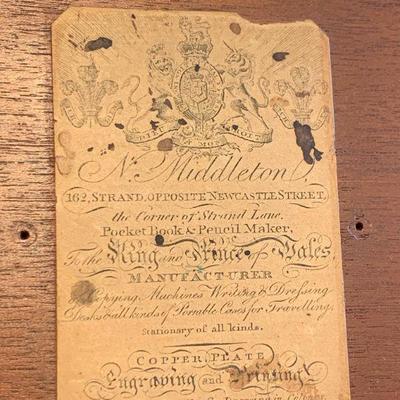 N. Middleton,
162, STRAND, OPPOSITE NEWCASTLE STREET,
the Corner of Strand Lane.
Pocket Book & Pencil Maker,
To the King and Prince of Wales,
MANUFACTURER
of Copying Machines Writing & Dressing
Desks & all kinds of Portable Cases for Travelling.
Stationary of all kinds.
COPPER, PLATE
Engraving and Printing